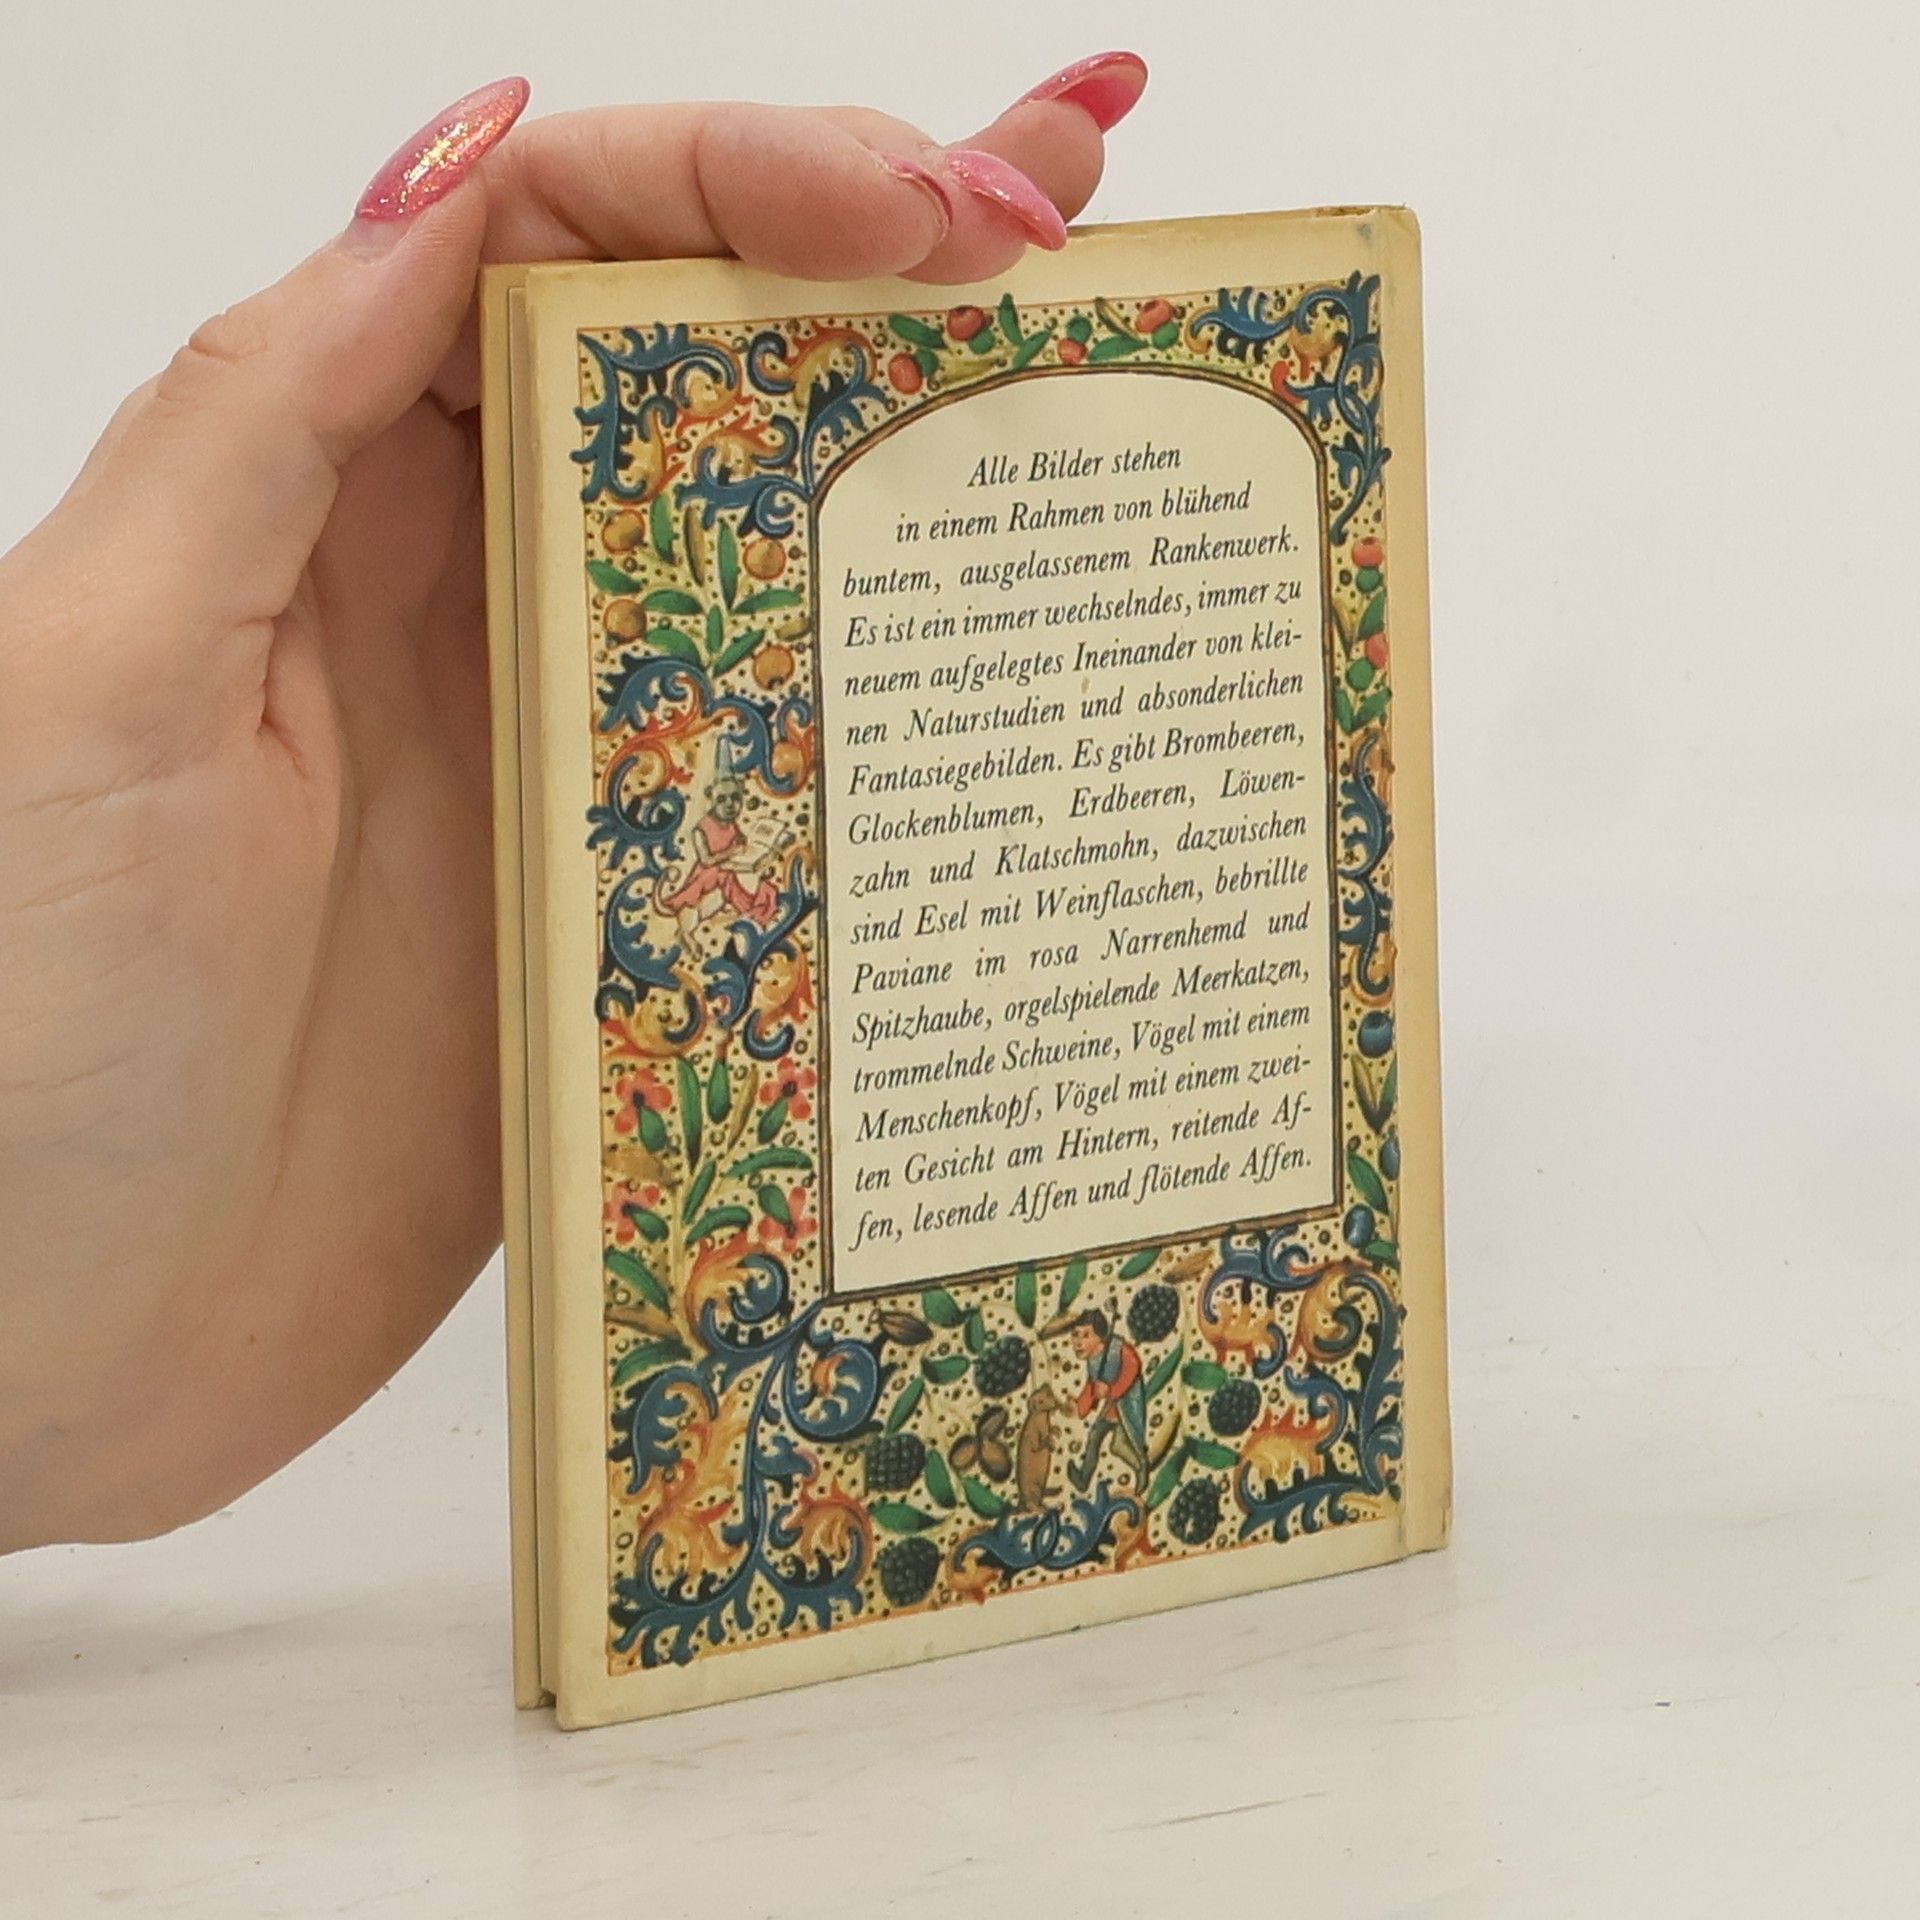 Alle Bilder stehen
in einem Rahmen von blühend
buntem, ausgelassenem Rankenwerk.
Es ist ein immer wechselndes, immer zu
neuem aufgelegtes Ineinander von klei-
nen Naturstudien und absonderlichen
Fantasiegebilden. Es gibt Brombeeren,
Glockenblumen, Erdbeeren, Löwen-
zahn und Klatschmohn, dazwischen
sind Esel mit Weinflaschen, bebrillte
Paviane im rosa Narrenhemd und
Spitzhaube, orgelspielende Meerkatzen,
trommelnde Schweine, Vögel mit einem
Menschenkopf, Vögel mit einem zwei-
ten Gesicht am Hintern, reitende Af-
fen, lesende Affen und flötende Affen.